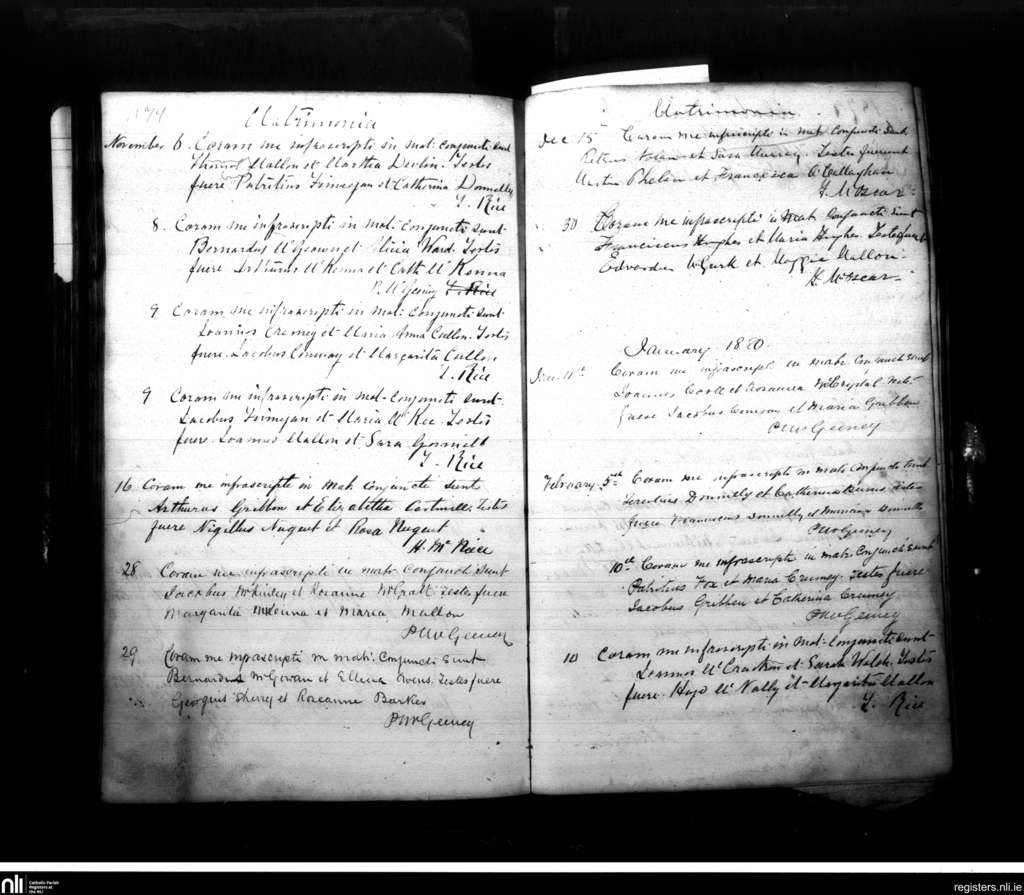 Matrimonia
November 6. Coram me infrascripti in mat. conjuncti sunt
Thomas Mallon et Martha Devlin. Testes
fuere Patritius Finnegan et Catherina Donnelly
T. Rice
8. Coram me infrascripti in mat. conjuncti sunt
Bernardus McGeown et Alicia Ward. Testes
fuere Arthurus McKenna et Cath McKenna
P. McGeeney T. Rice
9 Coram me infrascripti in mat. conjuncti sunt
Joannes et Maria Anna Cullen. Testes
fuere Jacobus et Margarita Cullen
T. Rice
9 Coram me infrascripti in mat. conjuncti sunt
Jacobus Finnegan et Maria McKee. Testes
fuere Joannes Mallon et Sara
T. Rice
16 Coram me infrascripti in mat. conjuncti sunt
Arthurus Gribben et Elizabitha Testes
fuere Nigellus Nugent et Rosa Nugent
28 Coram me infrascripti in matr. conjuncti sunt
Jacobus McKinley et Roseanne McGrath. Testes fuere
Margarita McKenna et Maria Mallon
PMcGeeney
29 Coram me infrascripti in matr. conjuncti sunt
Bernardus McGowan et Ellena Owens. Testes fuere
Georgius Sherry et Roseanne Barkes
PMcGeeney
Matrimonia
Dec 15 Coram me infrascripti in mat. conjuncti sunt
Petrus Nolan et Sara Murray. Testes fuerunt
Phelan et Francisca O'Callaghan
H. McOscar
30 Coram me infrascripti in Mat. conjuncti sunt
Franciscus Hughes et Maria Hughes. Testes fuere
Edvardus McGurk et Maggie Mallon
H. McOscar
January 1880
Jan. 11th Coram me infrascripti in matr. conjuncti sunt
Joannes Coyle et Rosanna McCrystal. Testes
fuere Jacobus et Maria Gribben
PMcGeeney
February 5th Coram me infrascripti in matr. conjuncti sunt
Donnelly et Catherina Burns. Testes
fuere Franciscus Donnelly et Donnelly
PMcGeeney
10th Coram me infrascripti in matr. conjuncti sunt
Patritius Fox et Maria Crumey. Testes fuere
Jacobus Gribben et Catherina Crumey
PMcGeeney
10 Coram me infrascripti in mat. conjuncti sunt
Joannes McCracken et Sarah Welsh. Testes
fuere Hugo McNally et Margarita Mallon
T. Rice
nli Catholic Parish
Registers at
the NLI
registers.nli.ie